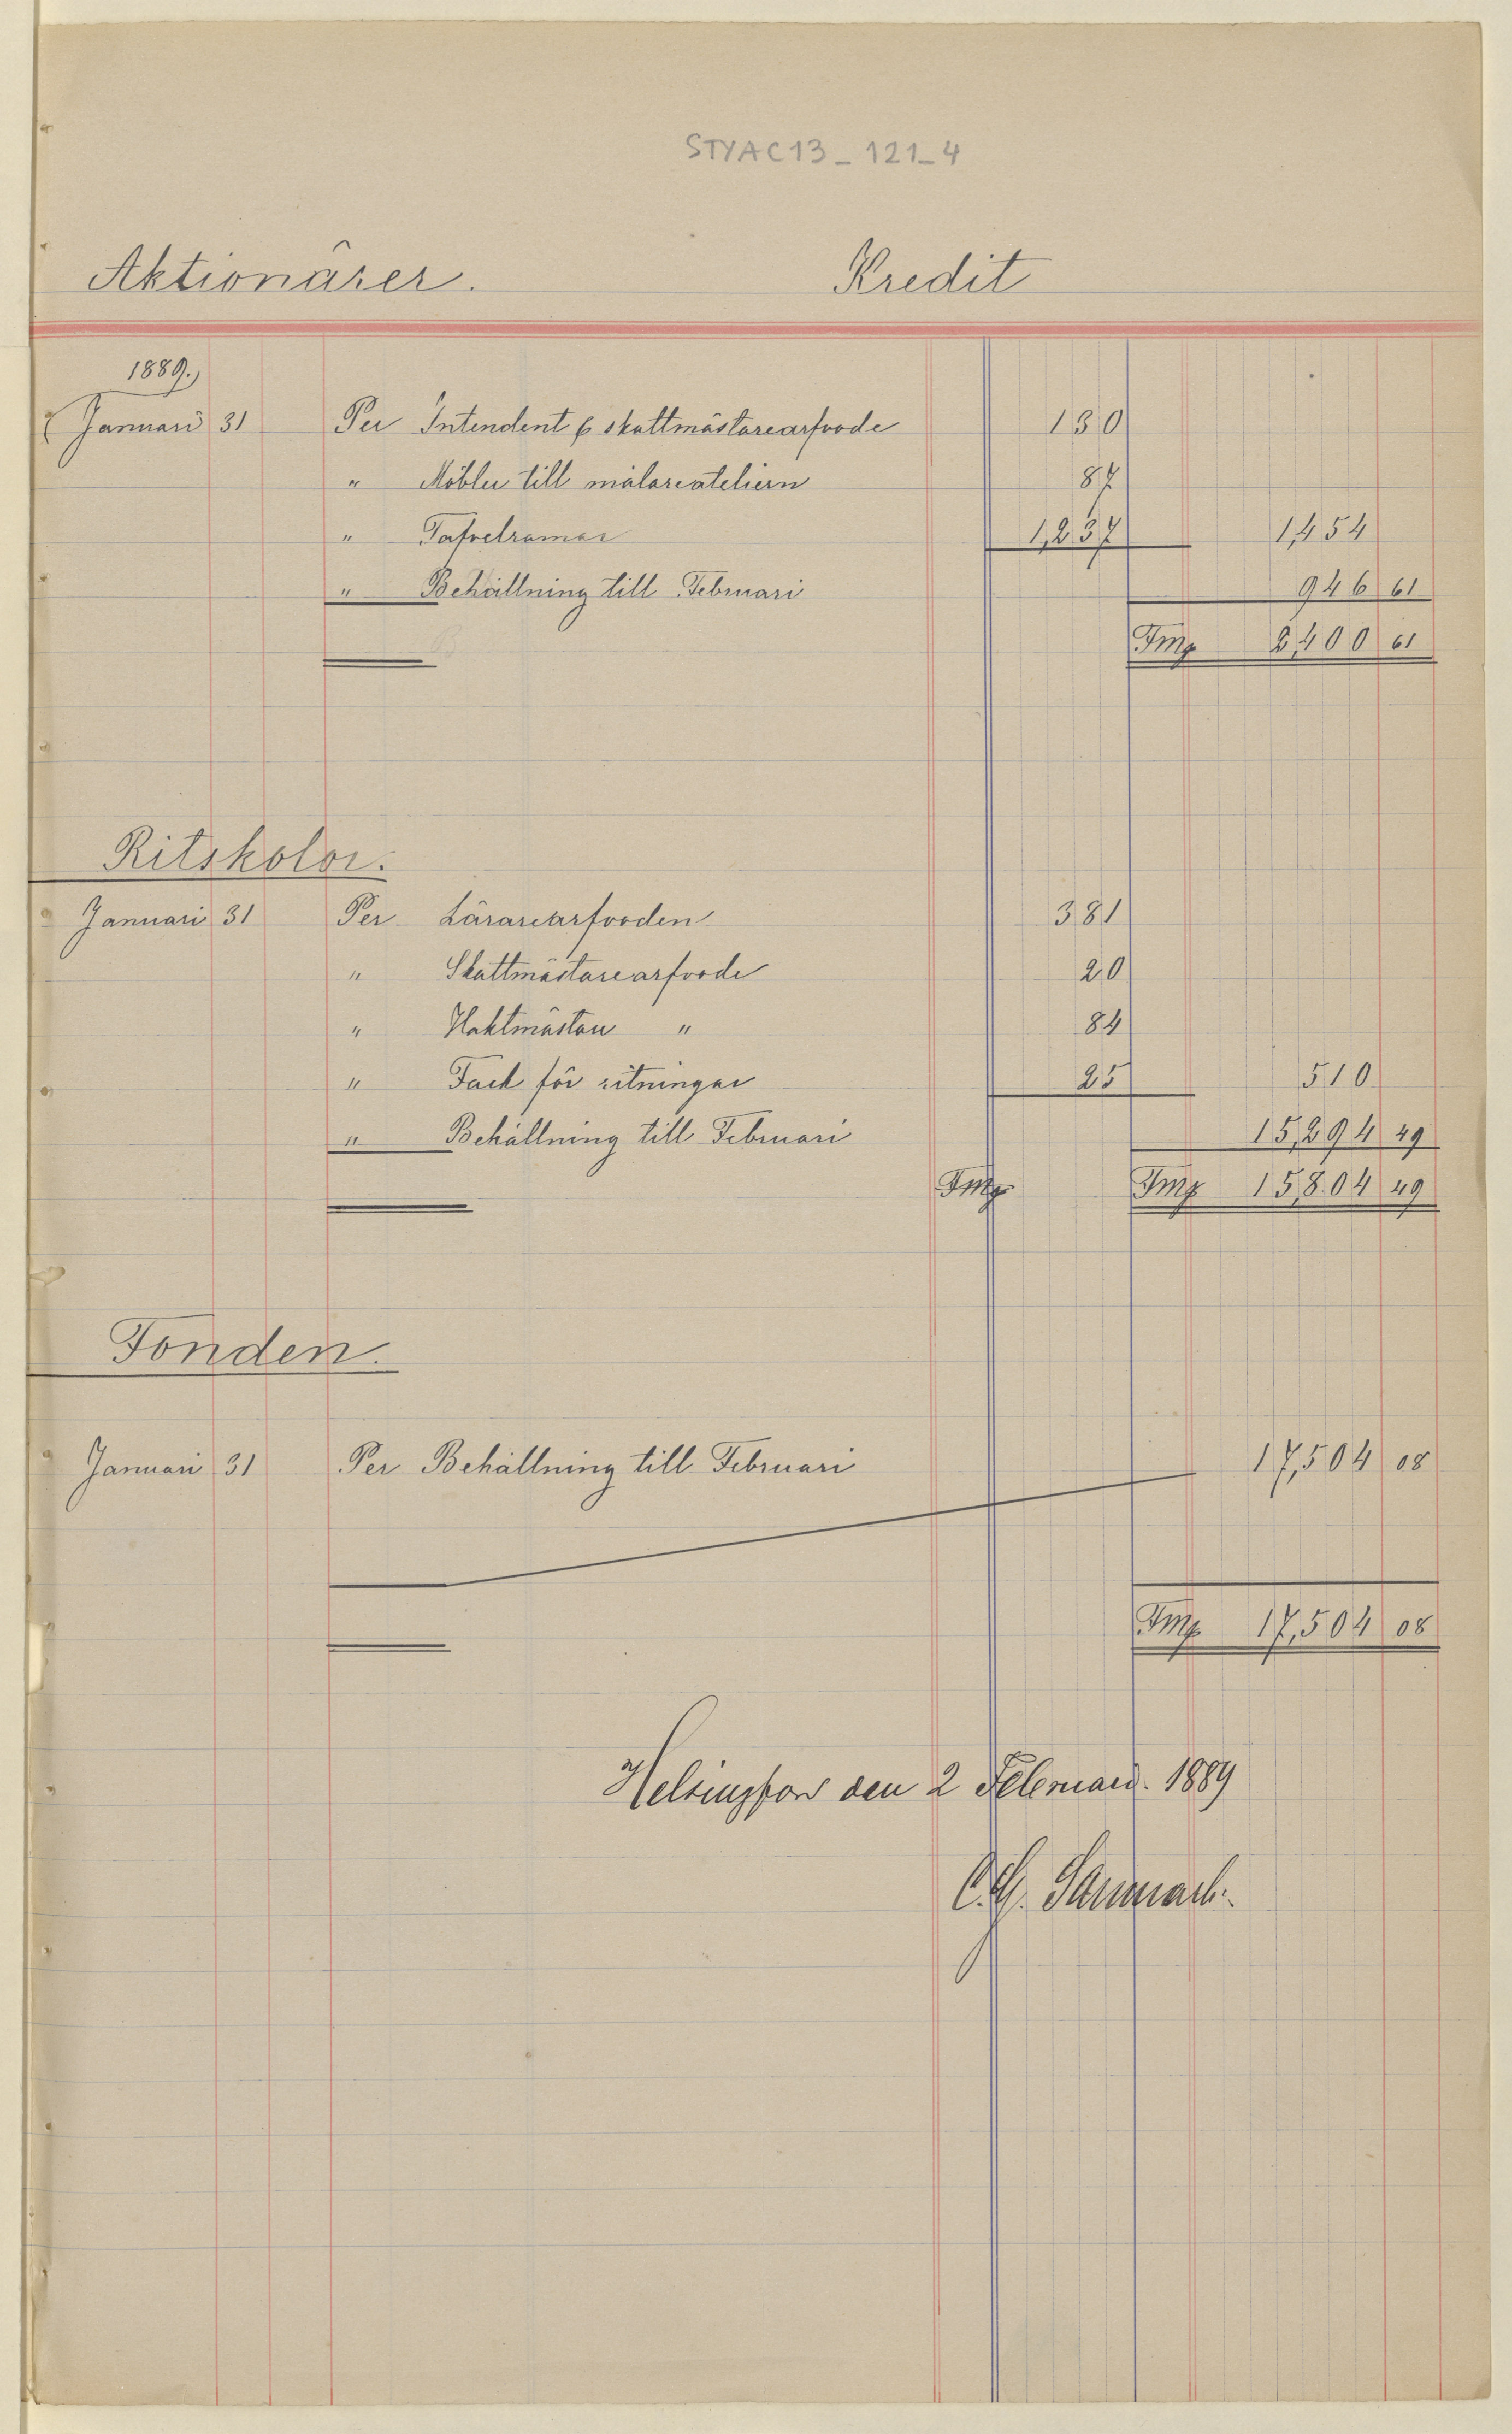 STYAC13_121_4
Aktionärer. Kredit
1889.
Januari 31 Per Intendent & skattmästarearfvode 130
" Möbler till målareateliern 87
" Tafvelramar 1,237 1,454
" Behållning till Februari 946 61
Fmg 2,400 61
Ritskolor.
Januari 31 Per Lärarearfvoden 381
" Skattmästarearfvode 20
" Vaktmästare " 84
" Fack för ritningar 25 510
" Behållning till Februari 15,294 49
Fmg Fmg 15,804 49
Fonden.
Januari 31 Per Behållning till Februari 17,504 08
Fmg 17,504 08
Helsingfors den 2 Februari 1889
C.G.